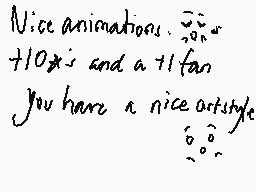 Nice animations.
+10★'s and a +1 fan
You have a nice artstyle